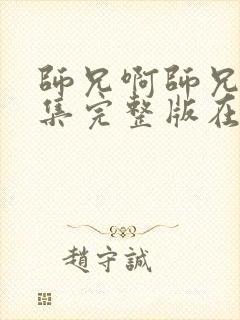 師兄啊師兄
集完整版在
趙守誠